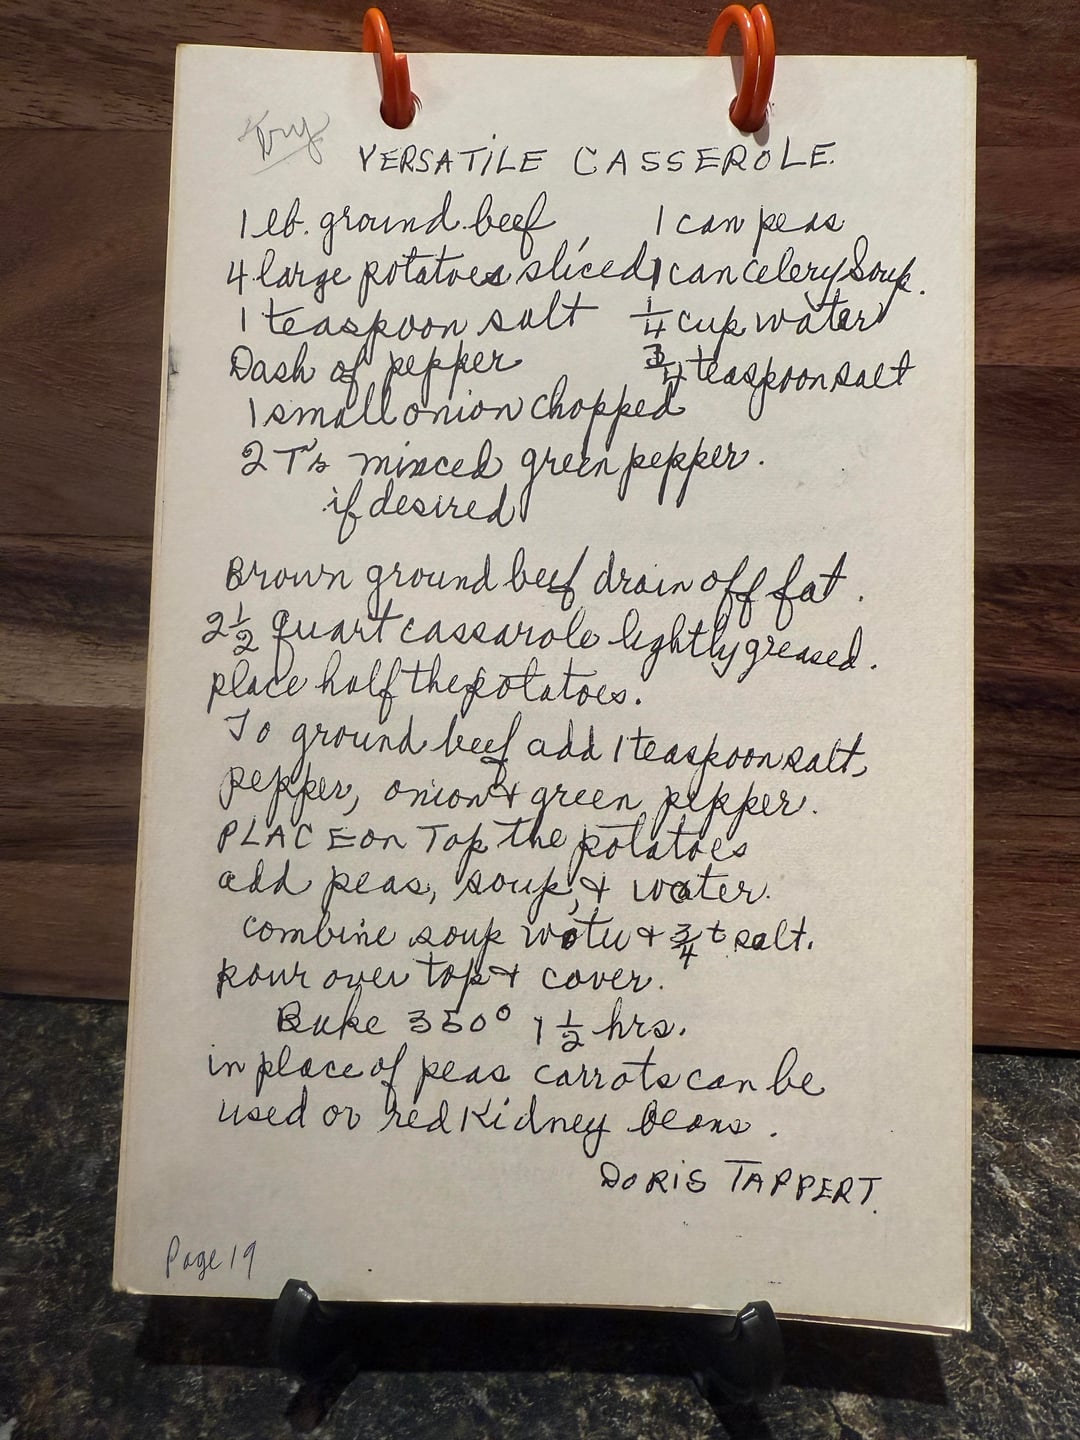 Try
VERSATILE CASSEROLE.
1 lb. ground beef 1 can peas
4 large potatoes sliced 1 can celery Soup.
1 teaspoon salt 1/4 cup water
Dash of pepper 3/4 teaspoon salt
1 small onion chopped
2 T's minced green pepper.
if desired
Brown ground beef drain off fat.
2 1/2 quart cassarole lightly greased.
place half the potatoes.
To ground beef add 1 teaspoon salt,
pepper, onion & green pepper.
PLACE on Top the potatoes
add peas, soup, & water.
combine soup water & 3/4 t salt.
pour over top & cover.
Bake 350° 1 1/2 hrs.
in place of peas carrots can be
used or red Kidney beans.
DORIS TAPPERT.
Page 19